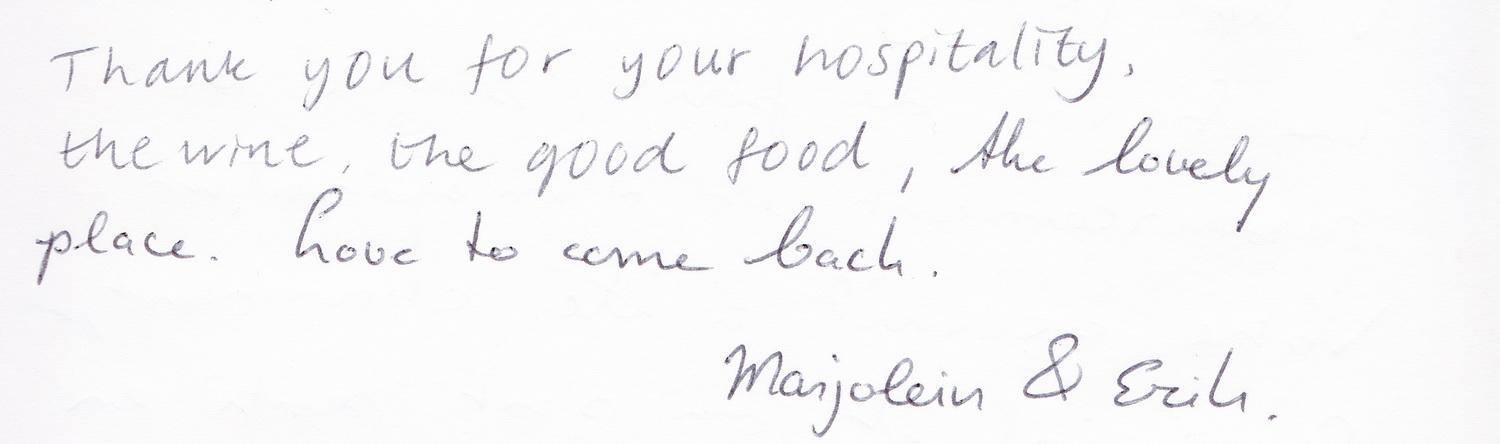 Thank you for your hospitality,
the wine, the good food, the lovely
place. have to come back.
Marjolein & Erik.